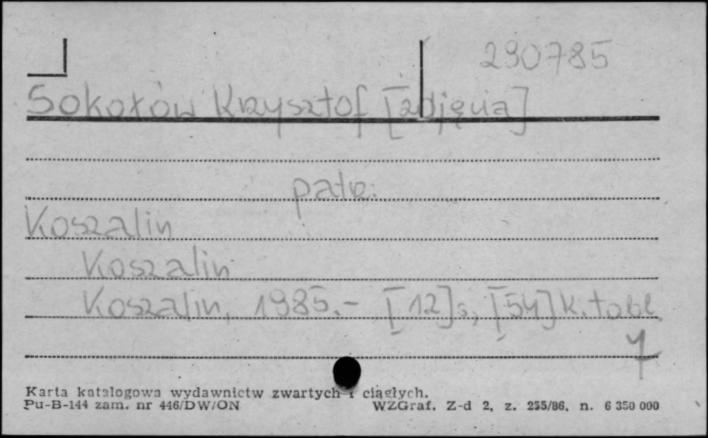 290785
Sokołów Krzysztof [zdjęcia]
patrz:
Koszalin
Koszalin
Koszalin, 1985.- [12]s, [54]k.tabl
Karta katalogowa wydawnictw zwartych i ciągłych.
Pu-B-144 zam. nr 446/DW/ON WZGraf. Z-d 2, z. 255/86, n. 6 350 000